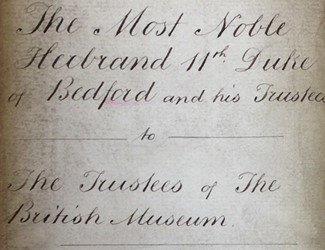 The Most Noble
Herbrand 11th Duke
of Bedford and his Trustees
to
The Trustees of The
British Museum.